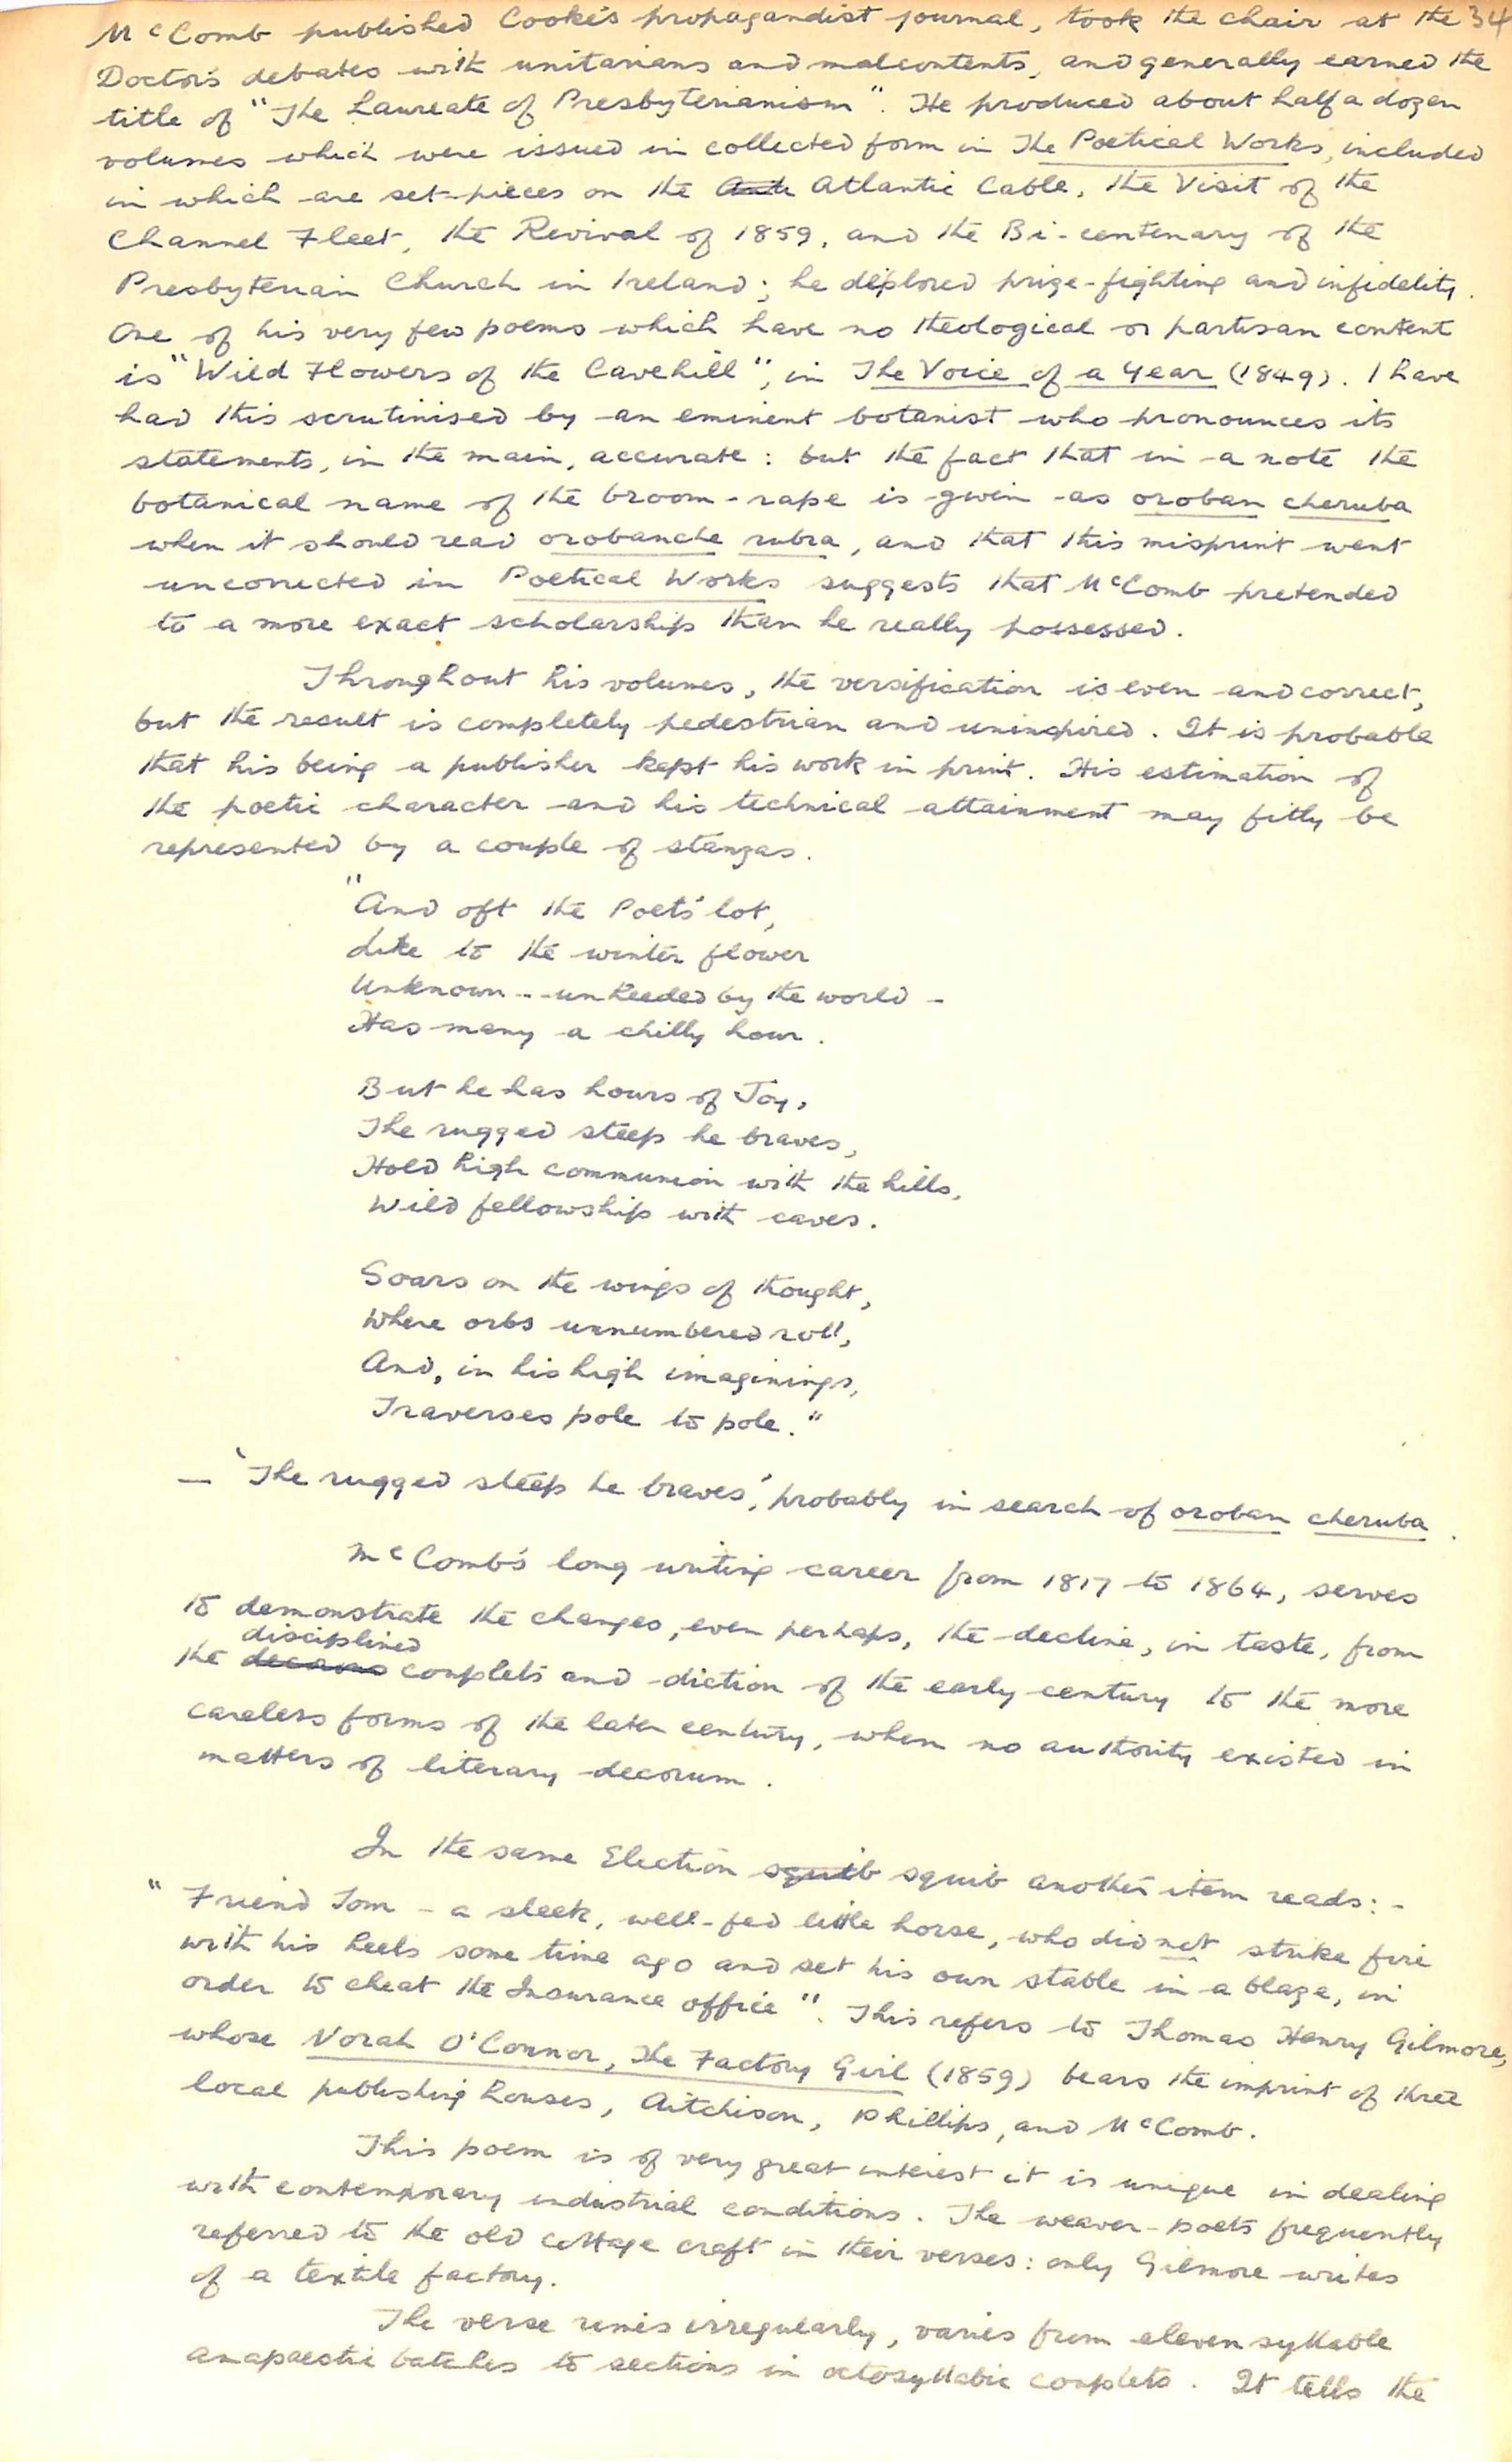 McComb published Cooke's propagandist journal, took the chair at the 34
Doctor's debates with unitarians and malcontents, and generally earned the
title of "The Laureate of Presbyterianism". He produced about half a dozen
volumes which were issued in collected form in The Poetical Works, included
in which are set-pieces on the Atlantic Cable, the Visit of the
Channel Fleet, the Revival of 1859, and the Bi-centenary of the
Presbyterian Church in Ireland; he deplored prize-fighting and infidelity.
One of his very few poems which have no theological or partisan content
is "Wild Flowers of the Cavehill", in The Voice of a Year (1849). I have
had this scrutinised by an eminent botanist who pronounces its
statements, in the main, accurate: but the fact that in a note the
botanical name of the broom-rape is given as oroban cheruba
when it should read orobanche rubra, and that this misprint went
uncorrected in Poetical Works suggests that McComb pretended
to a more exact scholarship than he really possessed.
Throughout his volumes, the versification is even and correct,
but the result is completely pedestrian and uninspired. It is probable
that his being a publisher kept his work in print. His estimation of
the poetic character and his technical attainment may fitly be
represented by a couple of stanzas.
"And oft the Poets' lot,
Like to the winter flower
Unknown -- unheeded by the world -
Has many a chilly hour.
But he has hours of Joy,
The rugged steep he braves,
Hold high communion with the hills,
Wild fellowship with caves.
Soars on the wings of thought,
Where orbs unnumbered roll,
And, in his high imaginings,
Traverses pole to pole."
— 'The rugged steep he braves', probably in search of oroban cheruba.
McComb's long writing career from 1817 to 1864, serves
to demonstrate the changes, even perhaps, the decline, in taste, from
disciplined
the couplets and diction of the early century to the more
careless forms of the later century, when no authority existed in
matters of literary decorum.
In the same Election squib squib another item reads:-
"Friend Tom - a sleek, well-fed little horse, who did not strike fire
with his heels some time ago and set his own stable in a blaze, in
order to cheat the Insurance office". This refers to Thomas Henry Gilmore,
whose Norah O'Connor, The Factory Girl (1859) bears the imprint of three
local publishing houses, Aitchison, Phillips, and McComb.
This poem is of very great interest it is unique in dealing
with contemporary industrial conditions. The weaver-poets frequently
referred to the old cottage craft in their verses: only Gilmore writes
of a textile factory.
The verse runs irregularly, varies from eleven syllable
anapaestic batches to sections in octosyllabic couplets. It tells the